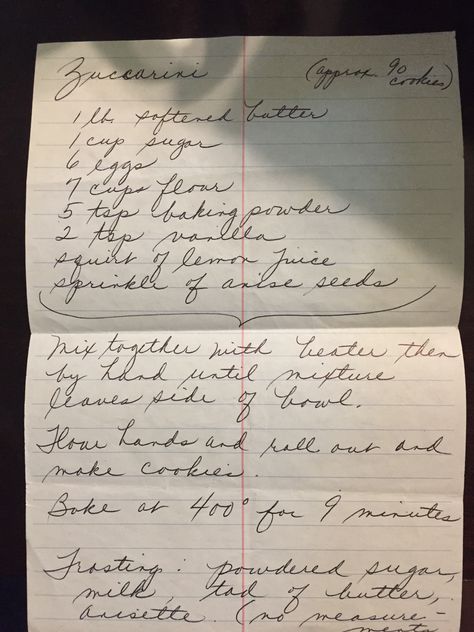 Zuccarini (approx. 90
cookies)
1 lb. softened butter
1 cup sugar
6 eggs
7 cups flour
5 tsp baking powder
2 tsp vanilla
squirt of lemon juice
sprinkle of anise seeds
Mix together with beater then
by hand until mixture
leaves side of bowl.
Flour hands and roll out and
make cookies.
Bake at 400° for 9 minutes
Frosting: powdered sugar,
milk, tad of butter,
anisette. (no measure-
ments